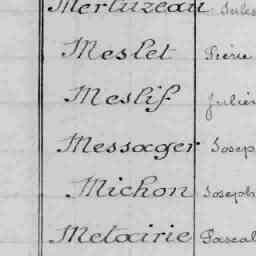 Merluzeau Jules
Meslet Pierre
Meslif Julien
Messager Joseph
Michon Joseph
Metairie Pascal